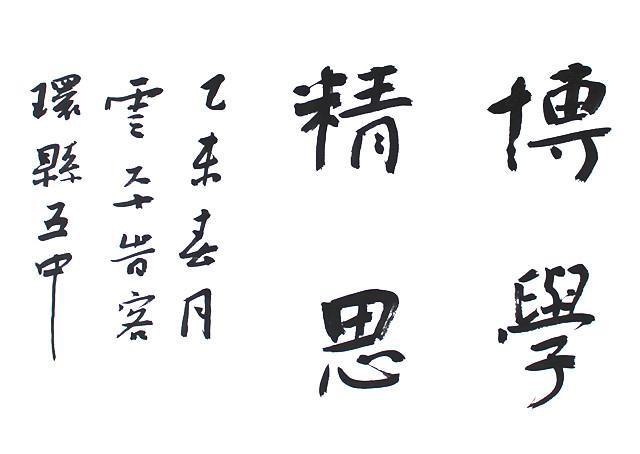 博學
精思
乙未春月
雲旹客
環縣五中